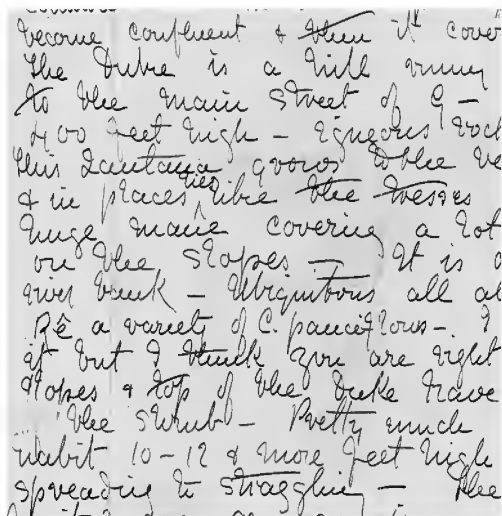 become confluent & then it cover
The Duke is a hill runn
to the main street of G —
400 feet high — igneous rock
this Lantana grows to the ve
& in places lies like the tresses
huge mane covering a lot
on the slopes — It is a
river bank — Ubiquitous all al
a variety of C. pauciflorus — I
it but I think you are right
slopes & top of the Duke have
the shrub — Pretty much
habit 10-12 & more feet high
spreading & straggling — The